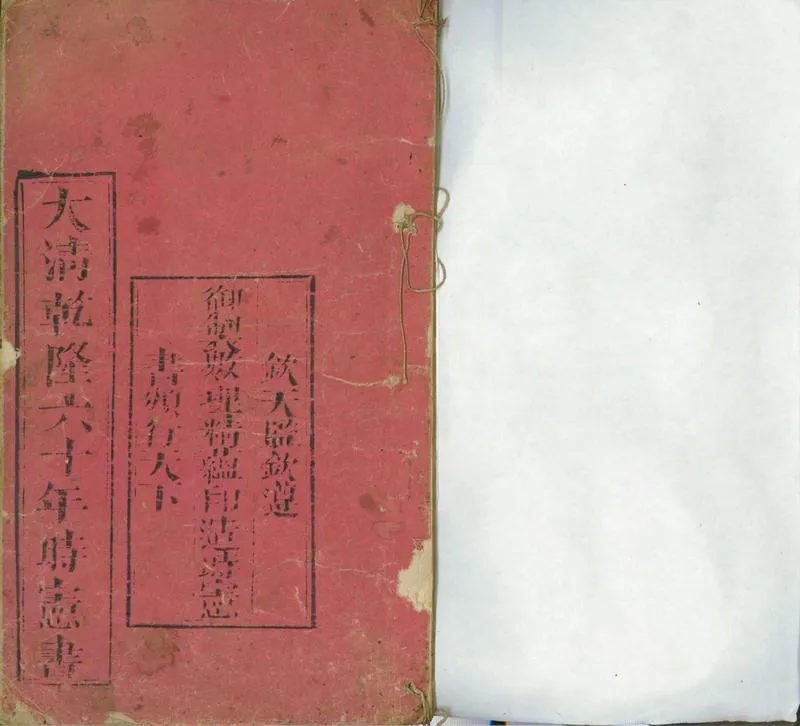 欽天監欽遵
御製數理精蘊印造時憲
書頒行天下
大清乾隆六十年時憲書